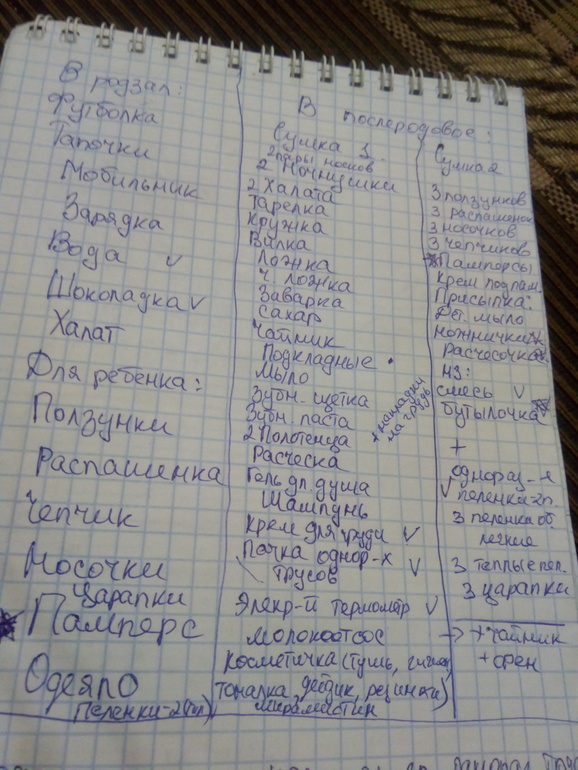 В родзал:
Футболка
Тапочки
Мобильник
Зарядка
Вода ✓
Шоколадка ✓
Халат
Для ребенка:
Ползунки
Распашенка
Чепчик
Носочки
Царапки
Памперс
Одеяло
Пеленки-2(тпл)
В послеродовое:
Сумка 1.
2 пары носков
2 Ночнушки
2 Халата
Тарелка
Кружка
Вилка
Ложка
Ч ложка
Заварка
Сахар
Чайник
Подкладные
Мыло
Зубн. щетка
Зубн. паста
2 Полотенца
Расческа
Гель дл. душа
Шампунь
Крем для груди ✓
Пачка однор-х ✓
Трусов
Элект-й термометр ✓
Молокоотсос
Косметичка (тушь, гигиен,
тоналка, дейдик, резинки)
Мирамистин
+ накладки
на грудь
Сумка 2
3 ползунков
3 распашенок
3 носочков
3 чепчиков
Памперсы
Крем под пам.
Присыпка:
Дет. мыло
ножнички
Расчесочка
НЗ:
смесь ✓
бутылочка
+
однораз-я
✓ пеленка-2п.
3 пеленка об.
легкие
3 теплые пел.
3 царапки
→ + чайник
+ фен